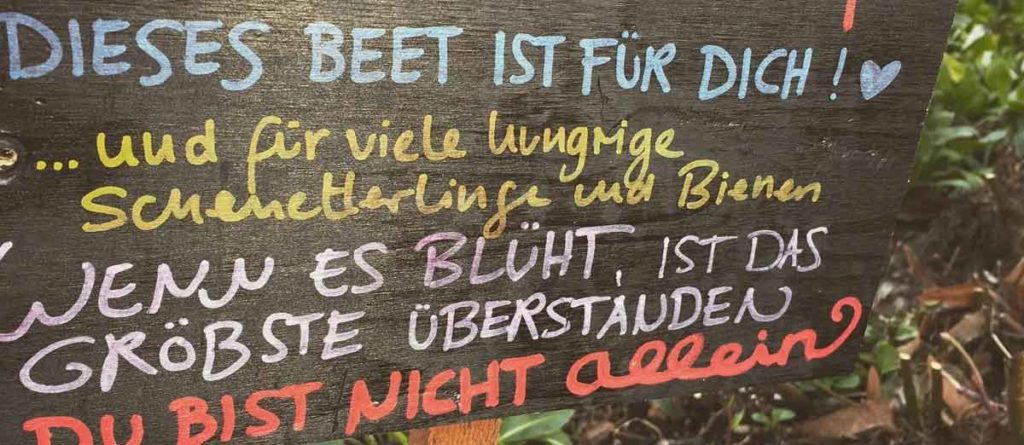 DIESES BEET IST FÜR DICH! ♡
... und für viele hungrige
Schmetterlinge und Bienen
WENN ES BLÜHT, IST DAS
GRÖBSTE ÜBERSTANDEN
DU BIST NICHT allein